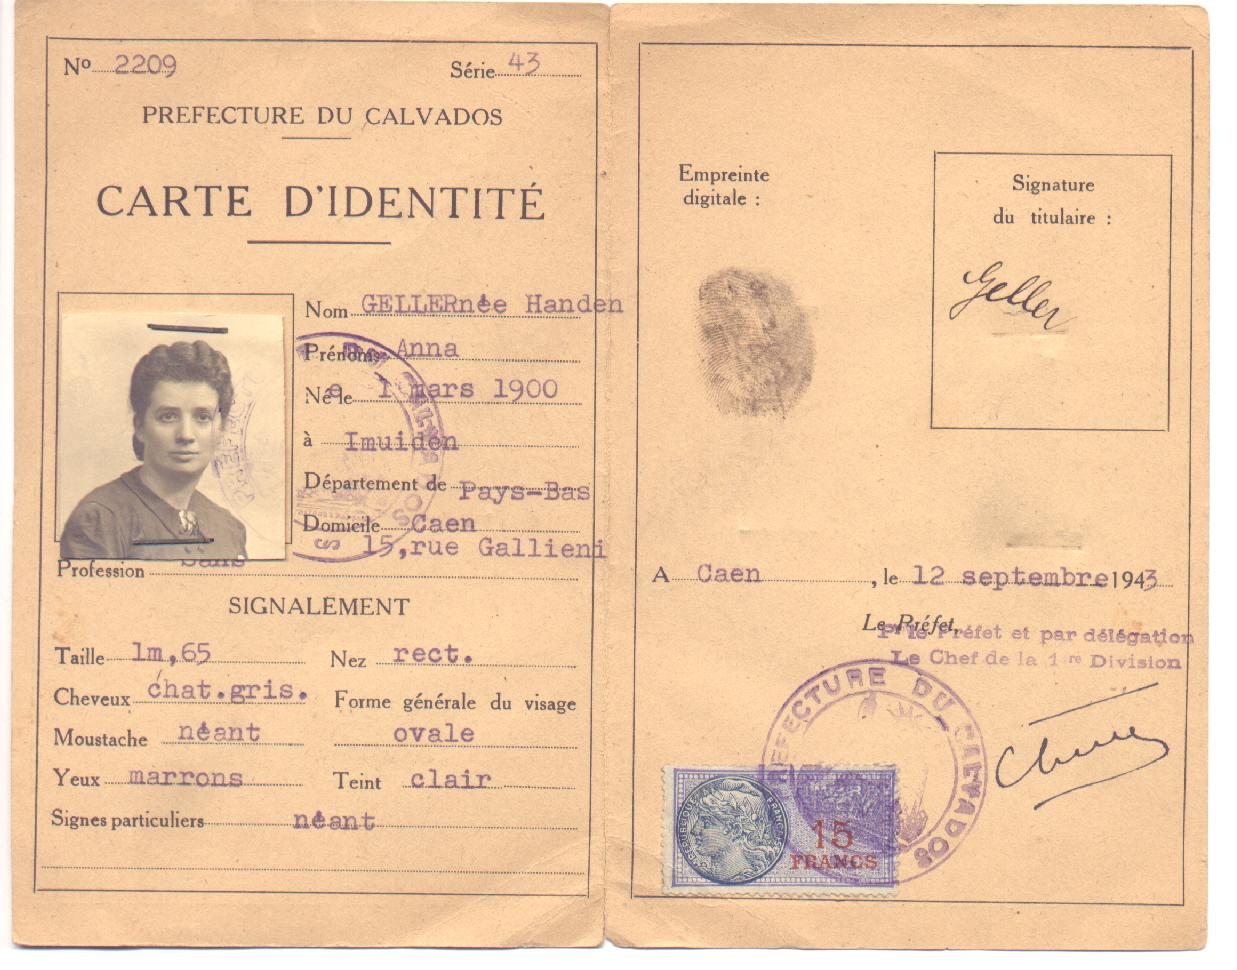 Nº 2209 Série 43
PREFECTURE DU CALVADOS
CARTE D'IDENTITÉ
Nom GELLERnée Handen
Prénoms Anna
Née le 1 mars 1900
à Imuiden
Département de Pays-Bas
Domicile Caen
15,rue Gallieni
Profession Sans
SIGNALEMENT
Taille 1m,65 Nez rect.
Cheveux chat.gris. Forme générale du visage
Moustache néant ovale
Yeux marrons Teint clair
Signes particuliers néant
Empreinte
digitale :
Signature
du titulaire :
Geller
A Caen, le 12 septembre 1943
Le Préfet,
Pr le Préfet et par délégation
Le Chef de la 1re Division
PREFECTURE DU CALVADOS
REPUBLIQUE FRANÇAISE
15
FRANCS